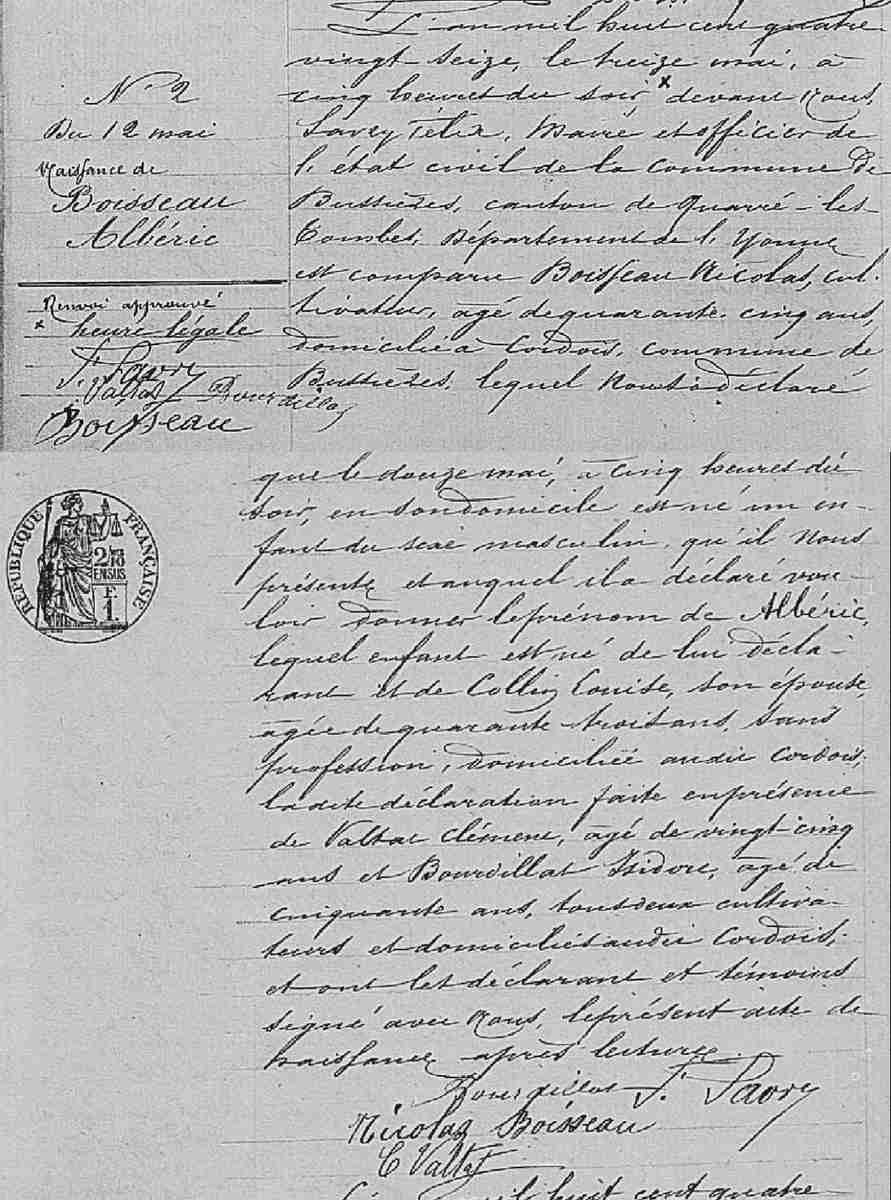 N° 2
Du 12 mai
Naissance de
Boisseau
Albéric
Renvoi approuvé
x heure légale
F. Savry
Valtat Bourdillat
Boisseau
L'an mil huit cent quatre
vingt-seize, le treize mai, à
cinq heures du soir x devant Nous,
Félix, Maire et officier de
l'état civil de la commune de
Bussières, canton de Quarré-les-
Tombes, Département de l'Yonne
est comparu Boisseau Nicolas, cul-
tivateur, agé de quarante-cinq ans,
domicilié à Cordois, commune de
Bussières, lequel Nous a déclaré
que le douze mai, à cinq heures du
soir, en son domicile est né un en-
fant du sexe masculin, qu'il Nous
présente et auquel il a déclaré vou-
loir donner le prénom de Albéric,
lequel enfant est né de lui décla-
rant et de Collin Louise, son épouse,
agée de quarante trois ans, sans
profession, domiciliée audit Cordois;
la dite déclaration faite en présence
de Valtat Clément, agé de vingt-cinq
ans et Bourdillat Isidore, agé de
cinquante ans, tous deux cultiva-
teurs et domiciliés audit Cordois;
et ont les déclarant et témoins
signé avec Nous, le présent acte de
naissance après lecture.
Bourdillat F. Savry
Nicolas Boisseau
C Valtat
huit cent quatre
RÉPUBLIQUE FRANÇAISE
2/10
EN SUS
F.
1.